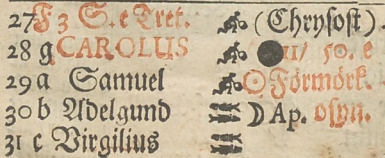 27 F 3 S. e Tref. (Chrysost).
28 g CAROLUS 11/ 50. e
29 a Samuel Förmörk.
30 b Adelgund Ap. osyn.
31 c Virgilius